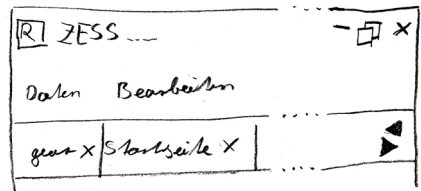 R ZESS ...
Daten Bearbeiten
gear x Startseite x